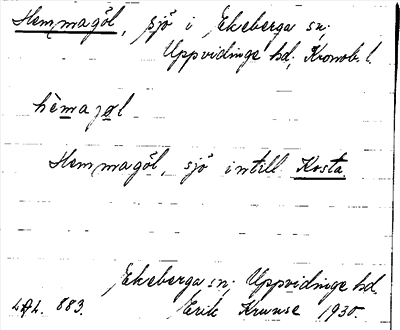 Hemmagöl, sjö i Ekeberga sn;
Uppvidinge hd, Kronob. l.
hèmajøl
Hemmagöl, sjö intill Kosta
Ekeberga sn; Uppvidinge hd.
883. Erik Kruuse 1930.